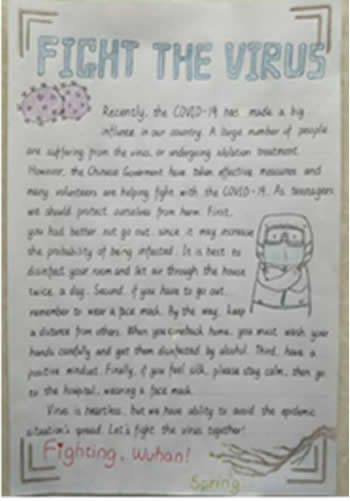 FIGHT THE VIRUS
Recently, the COVID-19 has made a big
influence in our country. A large number of people
are suffering from the virus, or undergoing isolation treatment.
However, the Chinese Goverment have taken effective measures and
many volunteers are helping fight with the COVID-19. As teenagers
we should protect ourselves from harm. First,
you had better not go out, since it may increase
the probability of being infected. It is best to
disinfect your room and let air through the house
twice a day. Second, if you have to go out,
remember to wear a face mask. By the way, keep
a distance from others. When you come back home, you must wash your
hands carefully and get them disinfected by alcohol. Third, have a
positive mindset. Finally, if you feel sick, please stay calm, then go
to the hospital, wearing a face mask.
Virus is heartless, but we have ability to avoid the epidemic
situation's spread. Let's fight the virus together!
Fighting, Wuhan!
Spring